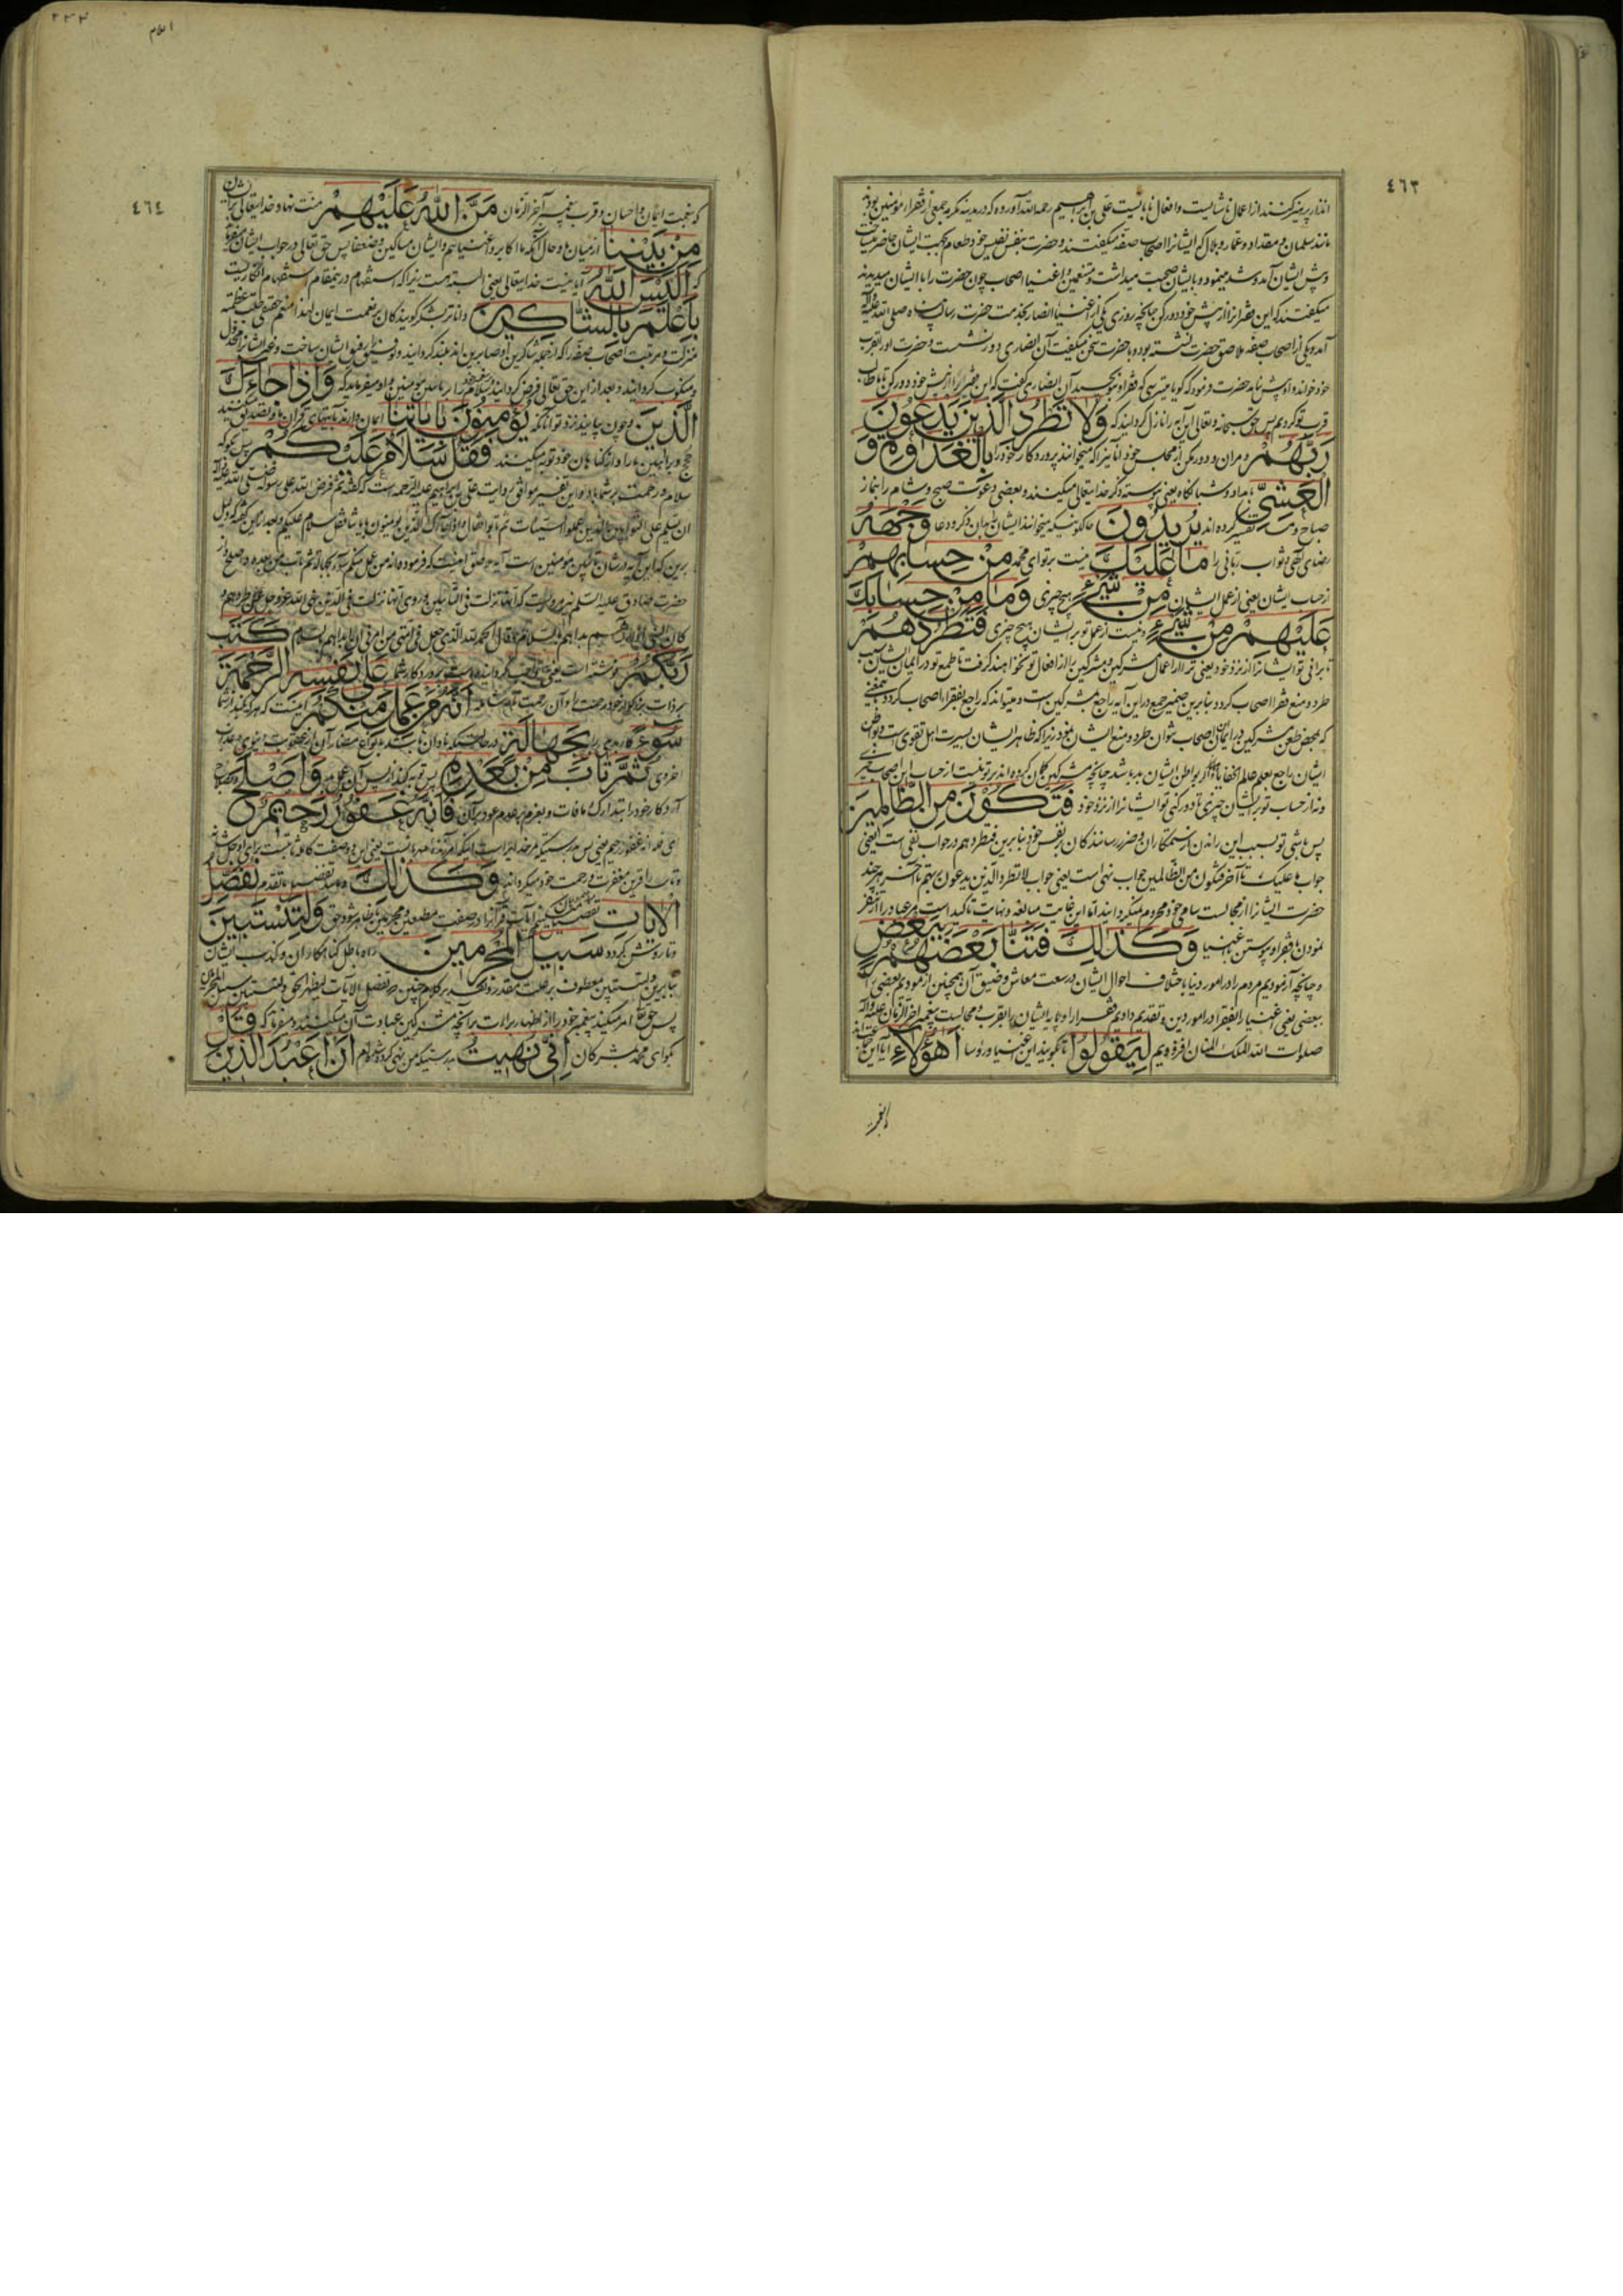 ٤٦٣
انذار پرهیز کنند از اعمال ناشایست و افعال نابایست علی بن ابراهیم رحمه الله آورده که در مدینه مکرمه جمعی از فقراء مؤمنین بودند
مانند سلمان و مقداد و عمار و بلال که ایشانرا اصحاب صفه میگفتند و حضرت بنفس نفیس خود طعام بجهت ایشان حاضر میساخت
وپیش ایشان آمد وشد مینمود و با ایشان صحبت میداشت و متنعمین و اغنیاء اصحاب چون حضرت را با ایشان میدیدند
میگفتند که این فقرا را از پیش خود دور کن چنانچه روزی یکی از اغنیاء انصار بخدمت حضرت رسالت پناه صلی الله علیه وآله
آمد و یکی از اصحاب صفه ملاصق حضرت نشسته بود و با حضرت سخن میگفت آن انصاری دور نشست و حضرت او را بقرب
خود خواند و او پیش نیامد حضرت فرمود که گویا میترسی که فقر او بتو چسبد آن انصاری گفت که این فقیر را از پیش خود دور کن تا طالب
قرب تو گردیم پس حق سبحانه وتعالی این آیه را نازل گردانید که وَلَا تَطْرُدِ الَّذِينَ يَدْعُونَ
رَبَّهُمْ ومران و دور مکن از مجلس خود آنانیرا که میخوانند پروردگار خود را بِالْغَدٰوةِ وَ
الْعَشِيِّ بامداد و شبانگاه یعنی پیوسته ذکر خدایتعالی میکنند و بعضی دعوت صبح و شام را بنماز
صباح و مسا تفسیر کرده اند يُرِيدُونَ حالکونیکه میخوانند ایشان بآن ذکر و دعا وَجْهَهُ
رضای الهی و ثواب ربانی را مَا عَلَيْكَ نیست بر تو ای محمد مِنْ حِسَابِهِمْ
از حساب ایشان یعنی از عمل ایشان مِنْ شَيْءٍ هیچ چیزی وَمَا مِنْ حِسَابِكَ
عَلَيْهِمْ مِنْ شَيْءٍ و نیست از عمل تو بر ایشان هیچ چیزی فَتَطْرُدَهُمْ
تا برانی تو ایشانرا از نزد خود یعنی ترا از اعمال مشرکین و مشرکین را از افعال تو نخواهند گرفت تا طمع تو در ایمان ایشان سبب
طرد و منع فقرا اصحاب گردد بنابرین ضمیر جمع در این آیه راجع بمشرکین است و میتواند که راجع بفقراء اصحاب گردد بمعنی
که بمحض طعن مشرکین در ایمان اصحاب نتوان طرد و منع ایشان نمود زیرا که ظاهر ایشان بسیرت اهل تقوی است و بواطن
ایشان راجع بعلم عالم الخفایا و اگر بواطن ایشان بد باشد چنانچه مشرکین گمان کرده اند بر تو نیست از حساب این اصحاب چیزی
و نه از حساب تو بر ایشان چیزی تا دور کنی تو ایشانرا از نزد خود فَتَكُونَ مِنَ الظَّالِمِينَ
پس باشی تو بسبب این راندن از ستمکاران و ضرر رسانندگان بنفس خود بنابرین فتطردهم در جواب نفی است یعنی
جواب ما علیک تا آخر فتکون من الظالمین جواب نهی است یعنی جواب لا تطرد الذین یدعون ربهم تا آخر هر چند
حضرت ایشانرا از مجالست سامی خود محروم نمیگردانید اما این غایت مبالغه و نهایت تاکید است مر عباد را از تنفر
نمودن با فقرا و پیوستن باغنیا وَكَذٰلِكَ فَتَنَّا بَعْضَهُمْ بِبَعْضٍ
و چنانچه آزمودیم مردم را در امور دنیا باختلاف احوال ایشان در سعت معاش و ضیق آن همچنین آزمودیم بعضی را
ببعضی یعنی اغنیا را بفقرا در امور دین و تقدیم دادیم فقرا را و پایه ایشان را بقرب و مجالست پیغمبر آخر الزمان علیه وآله
صلوات الله الملک المنان افزودیم لِيَقُولُوا تا گویند این اغنیا و رؤسا أَهٰؤُلَاءِ آیا این جماعت اند
٤٦٤
که بنعمت ایمان و احسان و قرب پیغمبر آخر الزمان مَنَّ اللَّهُ عَلَيْهِمْ منت نهاد خدایتعالی بر ایشان
مِنْ بَيْنِنَا از میان ما و حال آنکه ما اکابر و اغنیائیم و ایشان مساکین و ضعفا پس حق تعالی در جواب ایشان میفرماید
که أَلَيْسَ اللَّهُ آیا نیست خدایتعالی یعنی البته هست زیرا که استفهام در این مقام استفهام انکاریست
بِأَعْلَمَ بِالشَّاكِرِينَ داناتر بشکر گویندگان بر نعمت ایمان لهذا منتعم حقیقی جلت عظمته
منزلت و مرتبت اصحاب صفه را که از جمله شاکرین و صابرین اند بلند گردانید و توفیق رفیق ایشان ساخت
و منکوب گردانید و بعد از این حق تعالی فرض گردانید بر پیغمبر خود سلام را بر تائبین مؤمنین و او میفرماید که وَإِذَا جَاءَكَ
الَّذِينَ و چون بیایند نزد تو آنانکه يُؤْمِنُونَ بِآيَاتِنَا ایمان دارند بآیتهای قرآن ما و تصدیق میکنند
حجج و براهین ما را و از گناهان خود توبه میکنند فَقُلْ سَلَامٌ عَلَيْكُمْ پس بگو که
سلام و رحمت بر شما باد و این تفسیر موافق روایت علی بن ابراهیم علیه الرحمه است که گفته ثم فرض الله علی رسوله صلی الله علیه وآله
ان یسلم علی التوابین الذین عملوا السیئات ثم تابوا فقال واذا جاءک الذین یؤمنون بآیاتنا فقل سلام علیکم
برین که این آیه در شان تائبین مؤمنین است
حضرت صادق علیه السلام نیز مرویست که انها نزلت فی التائبین و مروی انها نزلت فی الذین نهی الله عز وجل عن طردهم و
کان النبی اذا رآهم بدأهم بالسلام وقال الحمد لله الذی جعل فی امتی من امرنی ان ابدأهم بالسلام كَتَبَ
رَبُّكُمْ نوشته است یعنی واجب گردانیده است پروردگار شما عَلَىٰ نَفْسِهِ الرَّحْمَةَ
بر ذات بزرگوار خود رحمت را و آن رحمت أَنَّهُ مَنْ عَمِلَ مِنْكُمْ اینست که هر که بکند از شما
سُوءًا کار بدی را بِجَهَالَةٍ در حالتیکه نادان باشد بانواع مضار آن از عقوبت دنیوی و عذاب
اخروی ثُمَّ تَابَ مِنْ بَعْدِهِ پس توبه کند از پس آن عمل بد وَأَصْلَحَ و بصلاح
آرد کار خود را بتدارک مافات و بعزم بر عدم عود بر آن فَأَنَّهُ غَفُورٌ رَحِيمٌ
ای فله انه غفور رحیم یعنی پس بدرستیکه مر خدایراست اینکه آمرزنده مهربانست
و تائب را قرین مغفرت و رحمت خود میگرداند وَكَذٰلِكَ و مانند تفصیل ما تقدم نُفَصِّلُ
الْآيَاتِ تفصیل میکنیم آیات قرآن را در صفت مطیعین و مجرمین تا ظاهر شود حق وَلِتَسْتَبِينَ
و تا روشن گردد سَبِيلُ الْمُجْرِمِينَ راه باطل گناهکاران و کذب ایشان
بنابرین ولتستبین معطوف بر علت مقدر بوده تقدیر کلام چنین که نفصل الآیات لیظهر الحق ولتستبین سبیل المجرمین
پس حق تعالی امر میکند پیغمبر خود را از اظهار براءت بر آنچه مشرکین عبادت آن میکنند و میفرماید که قُلْ
بگو ای محمد بمشرکان إِنِّي نُهِيتُ بدرستیکه من نهی کرده شده ام أَنْ أَعْبُدَ الَّذِينَ